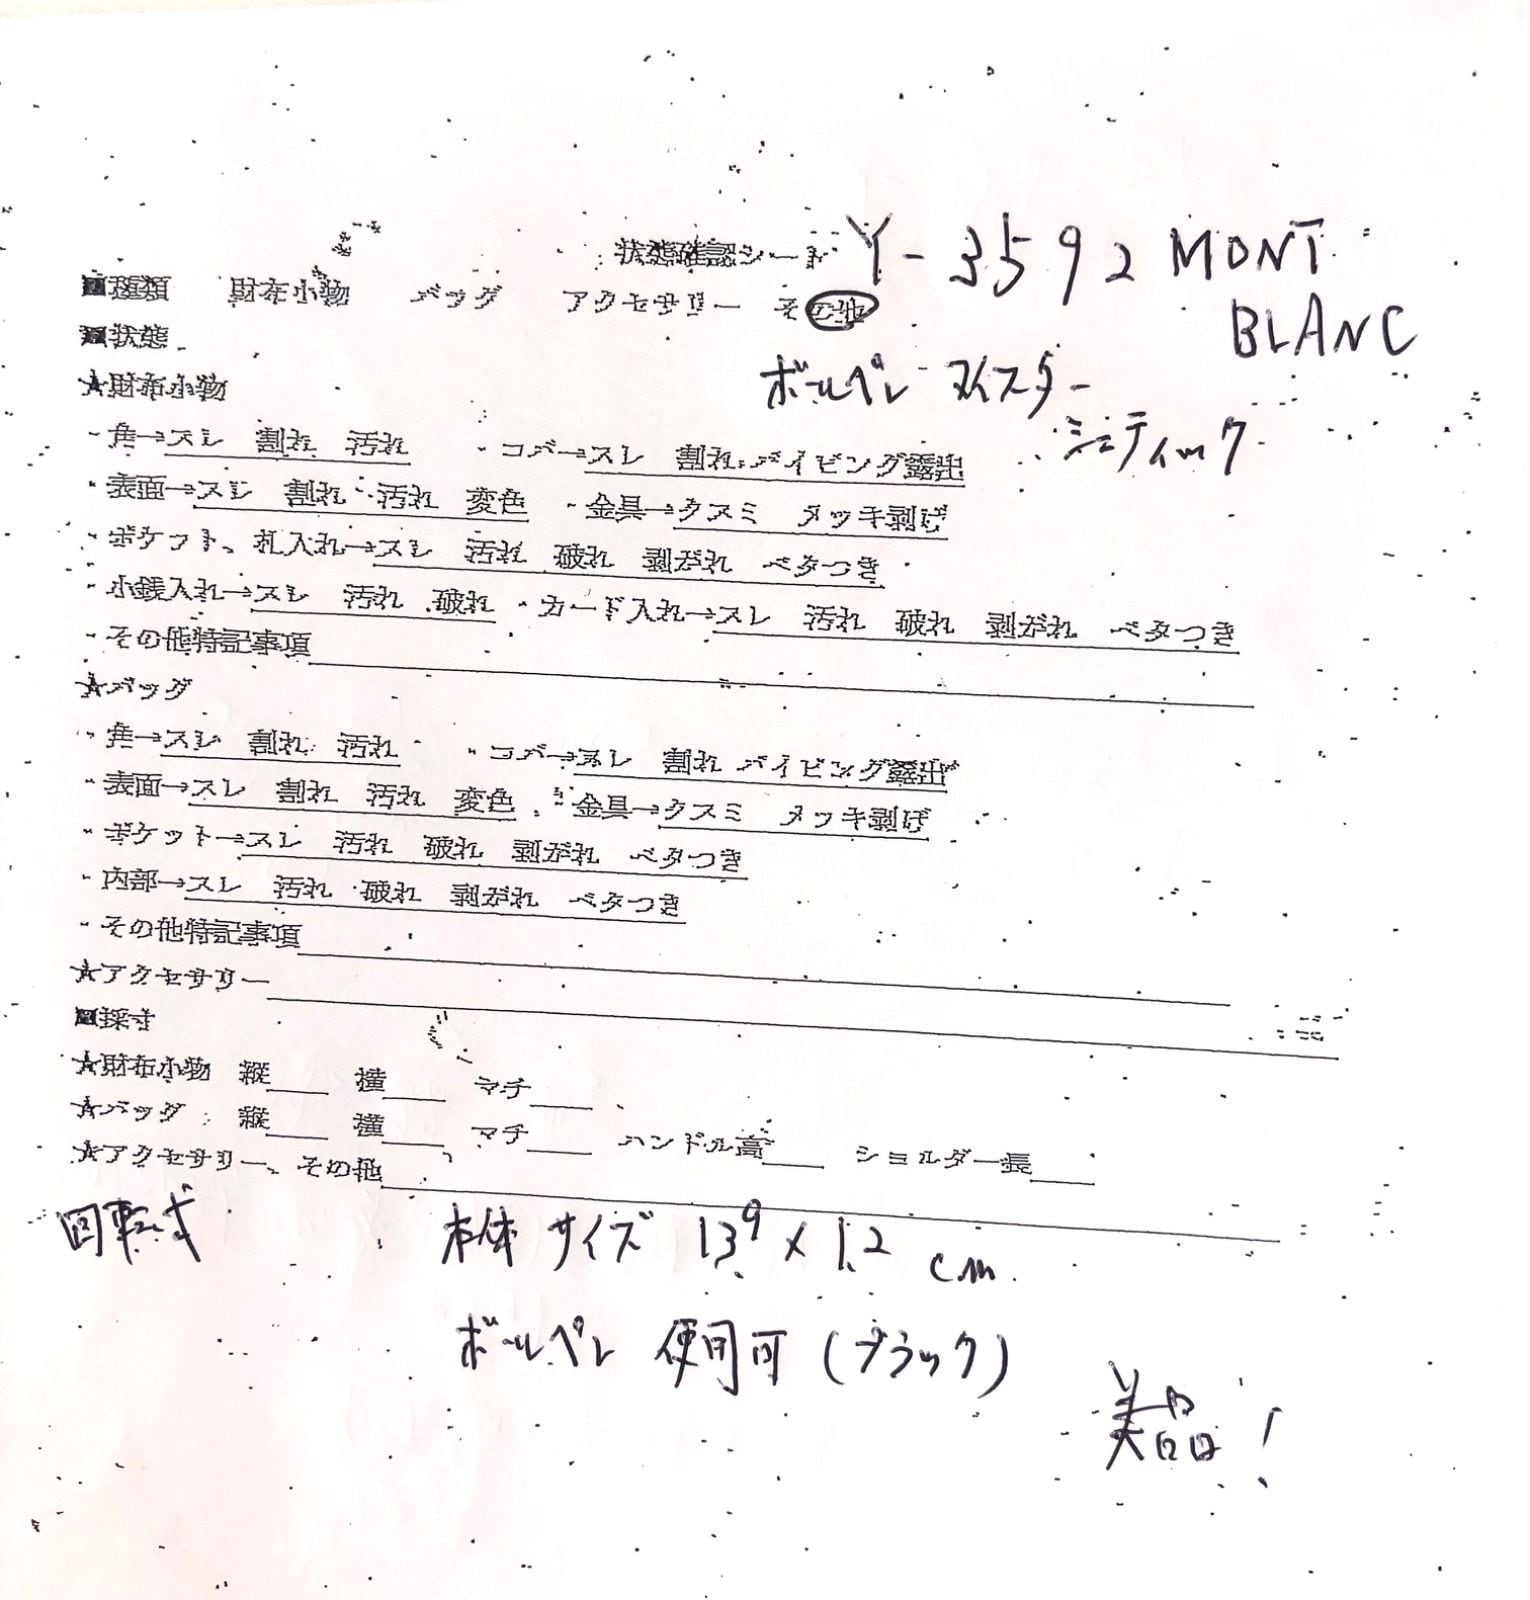 状態確認シート Y-3592 MONT
BLANC
■種類 財布小物 バッグ アクセサリー その他
■状態
ボールペン マイスター
シュティック
★財布小物
・角→スレ 割れ 汚れ ・コバ→スレ 割れ パイピング露出
・表面→スレ 割れ 汚れ 変色 ・金具→クスミ メッキ剥げ
・ポケット、札入れ→スレ 汚れ 破れ 剥がれ ベタつき
・小銭入れ→スレ 汚れ 破れ ・カード入れ→スレ 汚れ 破れ 剥がれ ベタつき
・その他特記事項
★バッグ
・角→スレ 割れ 汚れ ・コバ→スレ 割れ パイピング露出
・表面→スレ 割れ 汚れ 変色 ・金具→クスミ メッキ剥げ
・ポケット→スレ 汚れ 破れ 剥がれ ベタつき
・内部→スレ 汚れ 破れ 剥がれ ベタつき
・その他特記事項
★アクセサリー
■採寸
★財布小物 縦 横 マチ
★バッグ 縦 横 マチ ハンドル高 ショルダー長
★アクセサリー、その他
回転式 本体サイズ 13.9×1.2 cm
ボールペン 使用可 (ブラック)
美品!